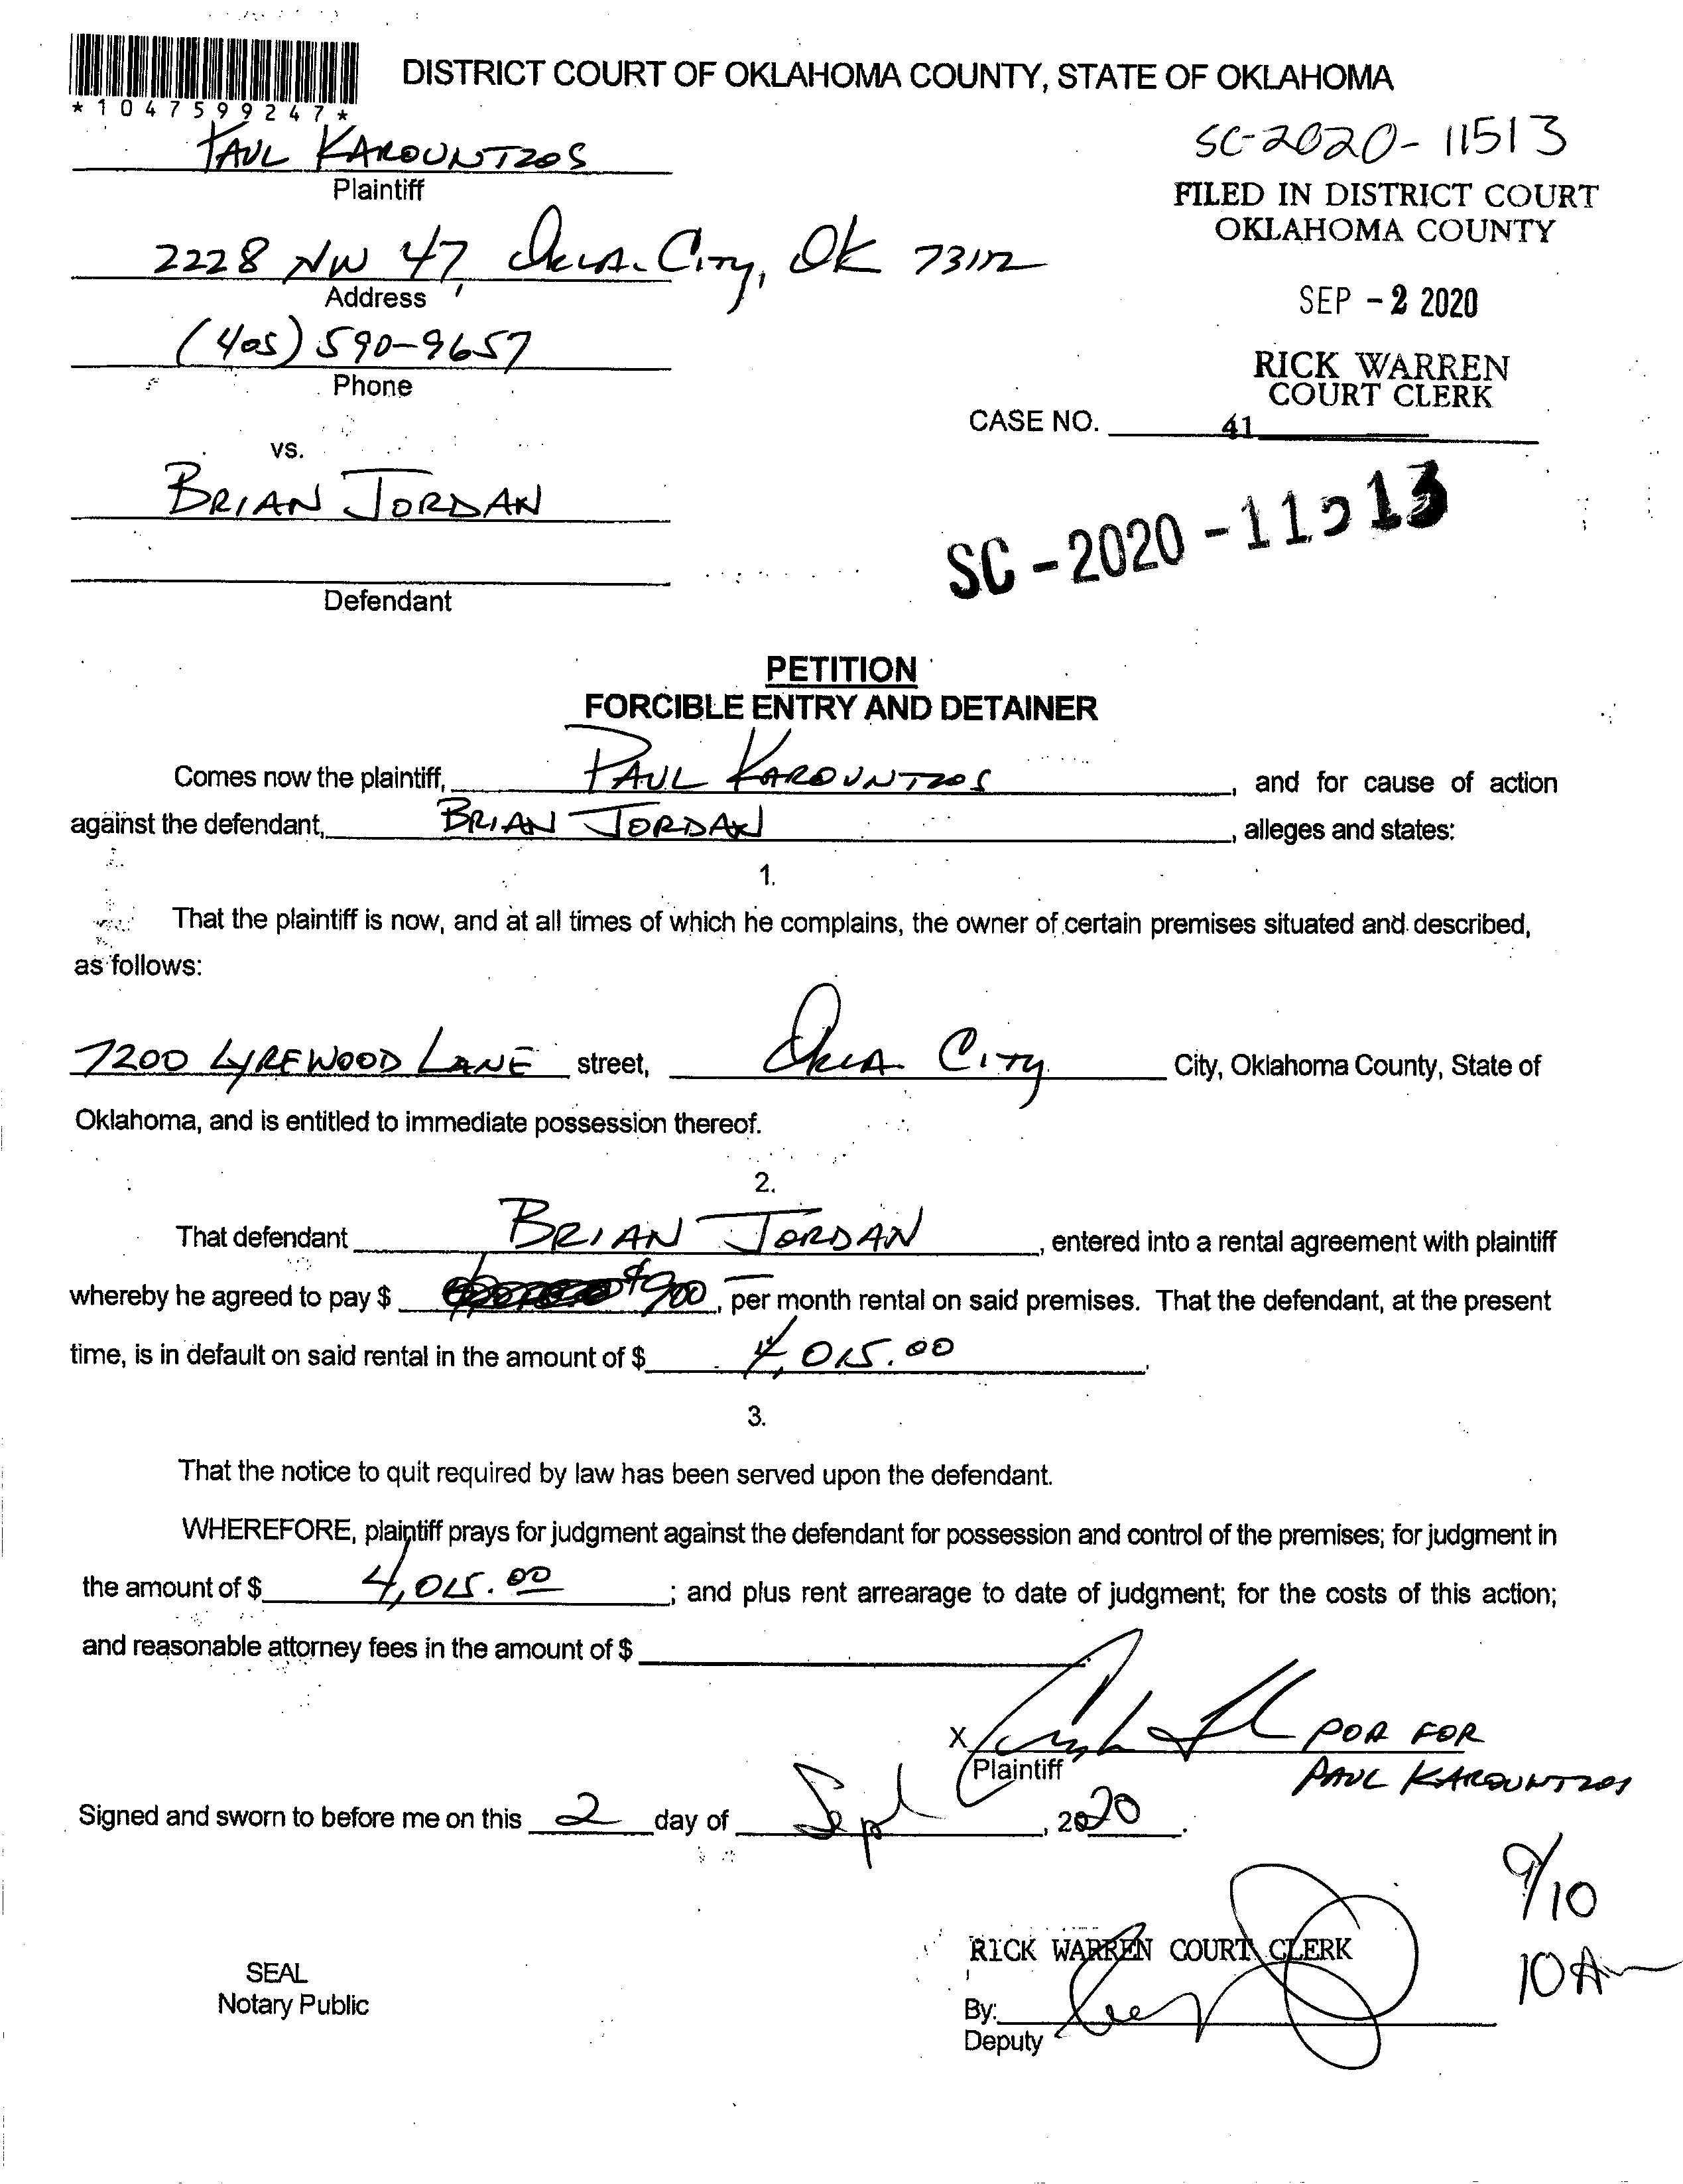 DISTRICT COURT OF OKLAHOMA COUNTY, STATE OF OKLAHOMA
*1047599247*
PAUL KAROUNTZOS
Plaintiff
SC-2020-11513
FILED IN DISTRICT COURT
OKLAHOMA COUNTY
2228 NW 47, OKLA. CITY, OK 73112
Address
SEP -2 2020
(405) 590-9657
Phone
RICK WARREN
COURT CLERK
CASE NO. 41
vs.
BRIAN JORDAN
SC-2020-11513
Defendant
PETITION
FORCIBLE ENTRY AND DETAINER
Comes now the plaintiff, PAUL KAROUNTZOS, and for cause of action
against the defendant, BRIAN JORDAN, alleges and states:
1.
That the plaintiff is now, and at all times of which he complains, the owner of certain premises situated and described,
as follows:
7200 LYREWOOD LANE street, OKLA CITY City, Oklahoma County, State of
Oklahoma, and is entitled to immediate possession thereof.
2.
That defendant BRIAN JORDAN, entered into a rental agreement with plaintiff
whereby he agreed to pay $ $900, per month rental on said premises. That the defendant, at the present
time, is in default on said rental in the amount of $ 4,015.00.
3.
That the notice to quit required by law has been served upon the defendant.
WHEREFORE, plaintiff prays for judgment against the defendant for possession and control of the premises; for judgment in
the amount of $ 4,015.00; and plus rent arrearage to date of judgment; for the costs of this action;
and reasonable attorney fees in the amount of $
X POA FOR
Plaintiff PAUL KAROUNTZOS
Signed and sworn to before me on this 2 day of Sept, 2020.
9/10
10 Am
RICK WARREN COURT CLERK
SEAL
Notary Public
By:
Deputy